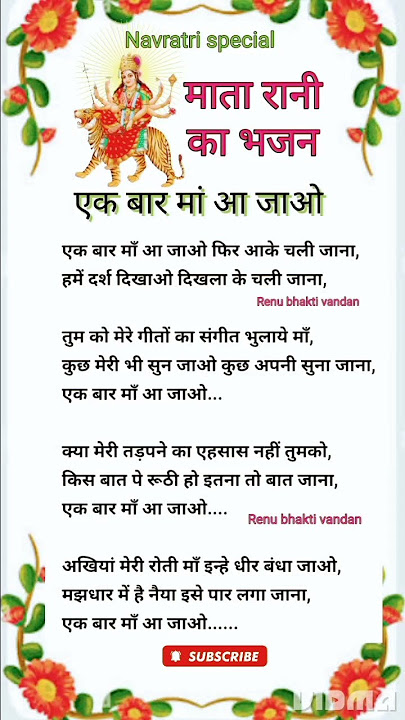 Navratri special
माता रानी
का भजन
एक बार मां आ जाओ
एक बार माँ आ जाओ फिर आके चली जाना,
हमें दर्श दिखाओ दिखला के चली जाना,
Renu bhakti vandan
तुम को मेरे गीतों का संगीत भुलाये माँ,
कुछ मेरी भी सुन जाओ कुछ अपनी सुना जाना,
एक बार माँ आ जाओ...
क्या मेरी तड़पने का एहसास नहीं तुमको,
किस बात पे रूठी हो इतना तो बात जाना,
एक बार माँ आ जाओ....
Renu bhakti vandan
अखियां मेरी रोती माँ इन्हे धीर बंधा जाओ,
मझधार में है नैया इसे पार लगा जाना,
एक बार माँ आ जाओ......
SUBSCRIBE
VIDMA